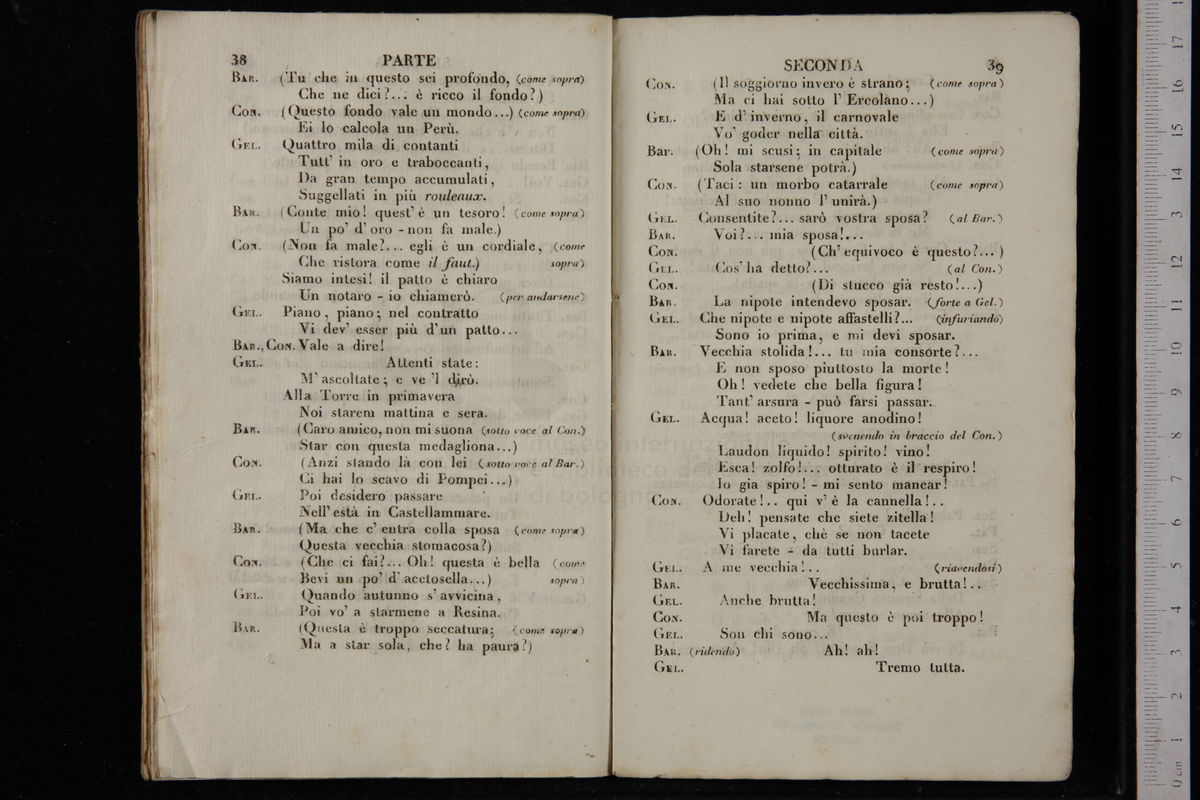 38 PARTE
BAR. (Tu che in questo sei profondo, (come sopra)
Che ne dici?... è ricco il fondo?)
CON. (Questo fondo vale un mondo...) (come sopra)
Ei lo calcola un Perù.
GEL. Quattro mila di contanti
Tutt' in oro e traboccanti,
Da gran tempo accumulati,
Suggellati in più rouleaux.
BAR. (Conte mio! quest' è un tesoro! (come sopra)
Un po' d' oro - non fa male.)
CON. (Non fa male?... egli è un cordiale, (come
Che ristora come il faut.) sopra)
Siamo intesi! il patto è chiaro
Un notaro - io chiamerò. (per andarsene)
GEL. Piano, piano; nel contratto
Vi dev' esser più d'un patto...
BAR., CON. Vale a dire!
GEL. Attenti state:
M' ascoltate; e ve 'l dirò.
Alla Torre in primavera
Noi starem mattina e sera.
BAR. (Caro amico, non mi suona (sotto voce al Con.)
Star con questa medagliona...)
CON. (Anzi stando là con lei (sotto voce al Bar.)
Ci hai lo scavo di Pompei...)
GEL. Poi desidero passare
Nell' està in Castellammare.
BAR. (Ma che c' entra colla sposa (come sopra)
Questa vecchia stomacosa?)
CON. (Che ci fai?... Oh! questa è bella (come
Bevi un po' d' acetosella...) sopra)
GEL. Quando autunno s' avvicina,
Poi vo' a starmene a Resina.
BAR. (Questa è troppo seccatura; (come sopra)
Ma a star sola, che? ha paura?)
SECONDA 39
CON. (Il soggiorno invero è strano; (come sopra)
Ma ci hai sotto l' Ercolano...)
GEL. E d' inverno, il carnovale
Vo' goder nella città.
Bar. (Oh! mi scusi; in capitale (come sopra)
Sola starsene potrà.)
CON. (Taci: un morbo catarrale (come sopra)
Al suo nonno l' unirà.)
GEL. Consentite?... sarò vostra sposa? (al Bar.)
BAR. Voi?... mia sposa!...
CON. (Ch' equivoco è questo?...)
GEL. Cos' ha detto?... (al Con.)
CON. (Di stucco già resto!...)
BAR. La nipote intendevo sposar. (forte a Gel.)
GEL. Che nipote e nipote affastelli?... (infuriando)
Sono io prima, e mi devi sposar.
BAR. Vecchia stolida!... tu mia consorte?...
E non sposo piuttosto la morte!
Oh! vedete che bella figura!
Tant' arsura - può farsi passar.
GEL. Acqua! aceto! liquore anodino!
(svenendo in braccio del Con.)
Laudon liquido! spirito! vino!
Esca! zolfo!... otturato è il respiro!
Io gia spiro! - mi sento mancar!
CON. Odorate!.. qui v' è la cannella!..
Deh! pensate che siete zitella!
Vi placate, chè se non tacete
Vi farete - da tutti burlar.
GEL. A me vecchia!.. (riavendosi)
BAR. Vecchissima, e brutta!..
GEL. Anche brutta!
CON. Ma questo è poi troppo!
GEL. Son chi sono...
BAR. (ridendo) Ah! ah!
GEL. Tremo tutta.